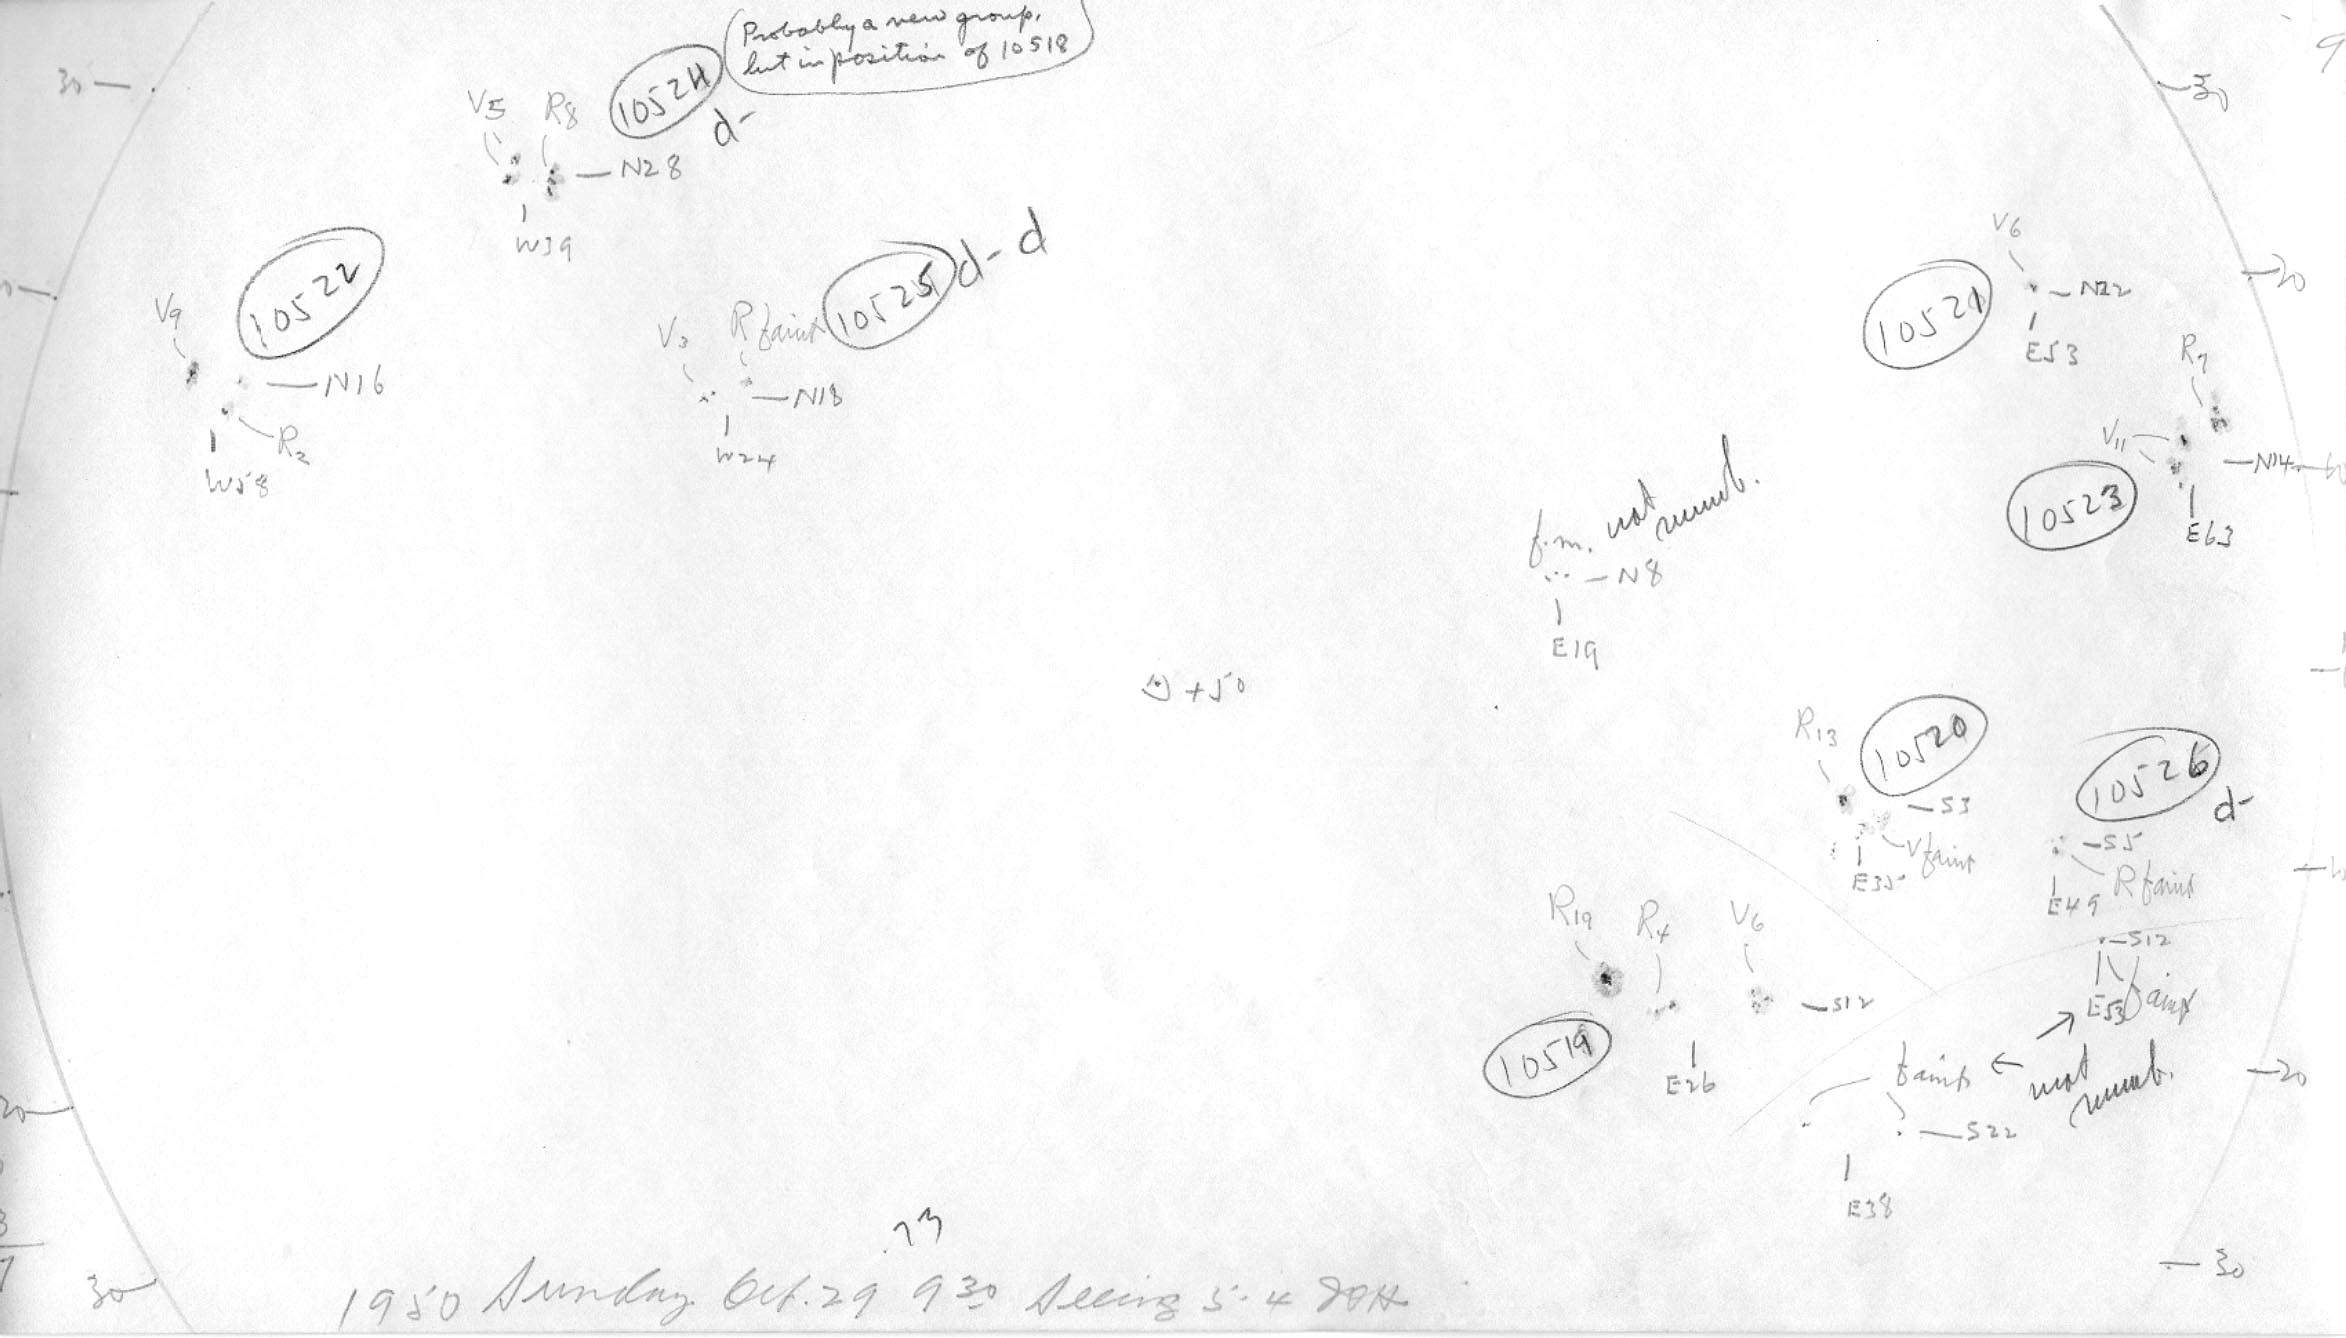 Probably a new group,
but in position of 10518
30
30
V5 R8 10524
d-
N28
W39
V9
10522
N16
R2
W58
V3 R faint 10525 d-d
N18
W24
V6
20
10521
N22
E53
R7
V11
N14
10523
E63
f.m. not
numb.
N8
E19
+50
R13
10520
S3
V faint
E35
10526
d-
S5
R faint
E49
S12
E53 faint
R19 R4 V6
S12
10519
E26
faint ← → not
numb.
S22
E38
20
20
30
30
.73
1950 Sunday Oct. 29 9 30 Seeing 5-4